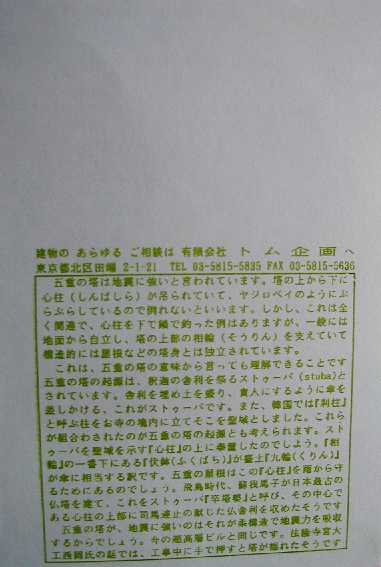 建物の あらゆる ご相談は 有限会社 トム企画 へ
東京都北区田端 2-1-21 TEL 03-5815-5835 FAX 03-5815-5636
五重の塔は地震に強いと言われています。塔の上から下に
心柱(しんばしら)が吊られていて、ヤジロベイのようにぶ
らぶらしているので倒れないといいます。しかし、これは全
く間違で、心柱を下で鎖で釣った例はありますが、一般には
地面から自立し、塔の上部の相輪(そうりん)を支えていて
構造的には屋根などの塔身とは独立されています。
これは、五重の塔の意味から言っても理解できることです
五重の塔の起源は、釈迦の舎利を祭るストゥーパ(stuba)と
されています。舎利を埋め土を盛り、貴人にするように傘を
差しかける、これがストゥーパです。また、韓国では『刹柱』
と呼ぶ柱をお寺の境内に立てそこを聖域としました。これら
が組合わされたのが五重の塔の起源とも考えられます。スト
ゥーパを聖域を示す『心柱』の上に奉置したのでしょう。『相
輪』の一番下にある『伏鉢(ふくばち)』が盛土『九輪(くりん)』
が傘に相当する訳です。五重の屋根はこの『心柱』を雨から守
るためにあるのでしょう。飛鳥時代、蘇我馬子が日本最古の
仏塔を建て、これをストゥーパ『卒塔婆』と呼び、その中心で
ある心柱の上部に司馬達止の献じた仏舎利を収めたそうです
五重の塔が、地震に強いのはそれが柔構造で地震力を吸収
するからでしょう。今の超高層ビルと同じです。法輪寺宮大
工西岡氏の話では、工事中に手で押すと塔が揺れたそうです